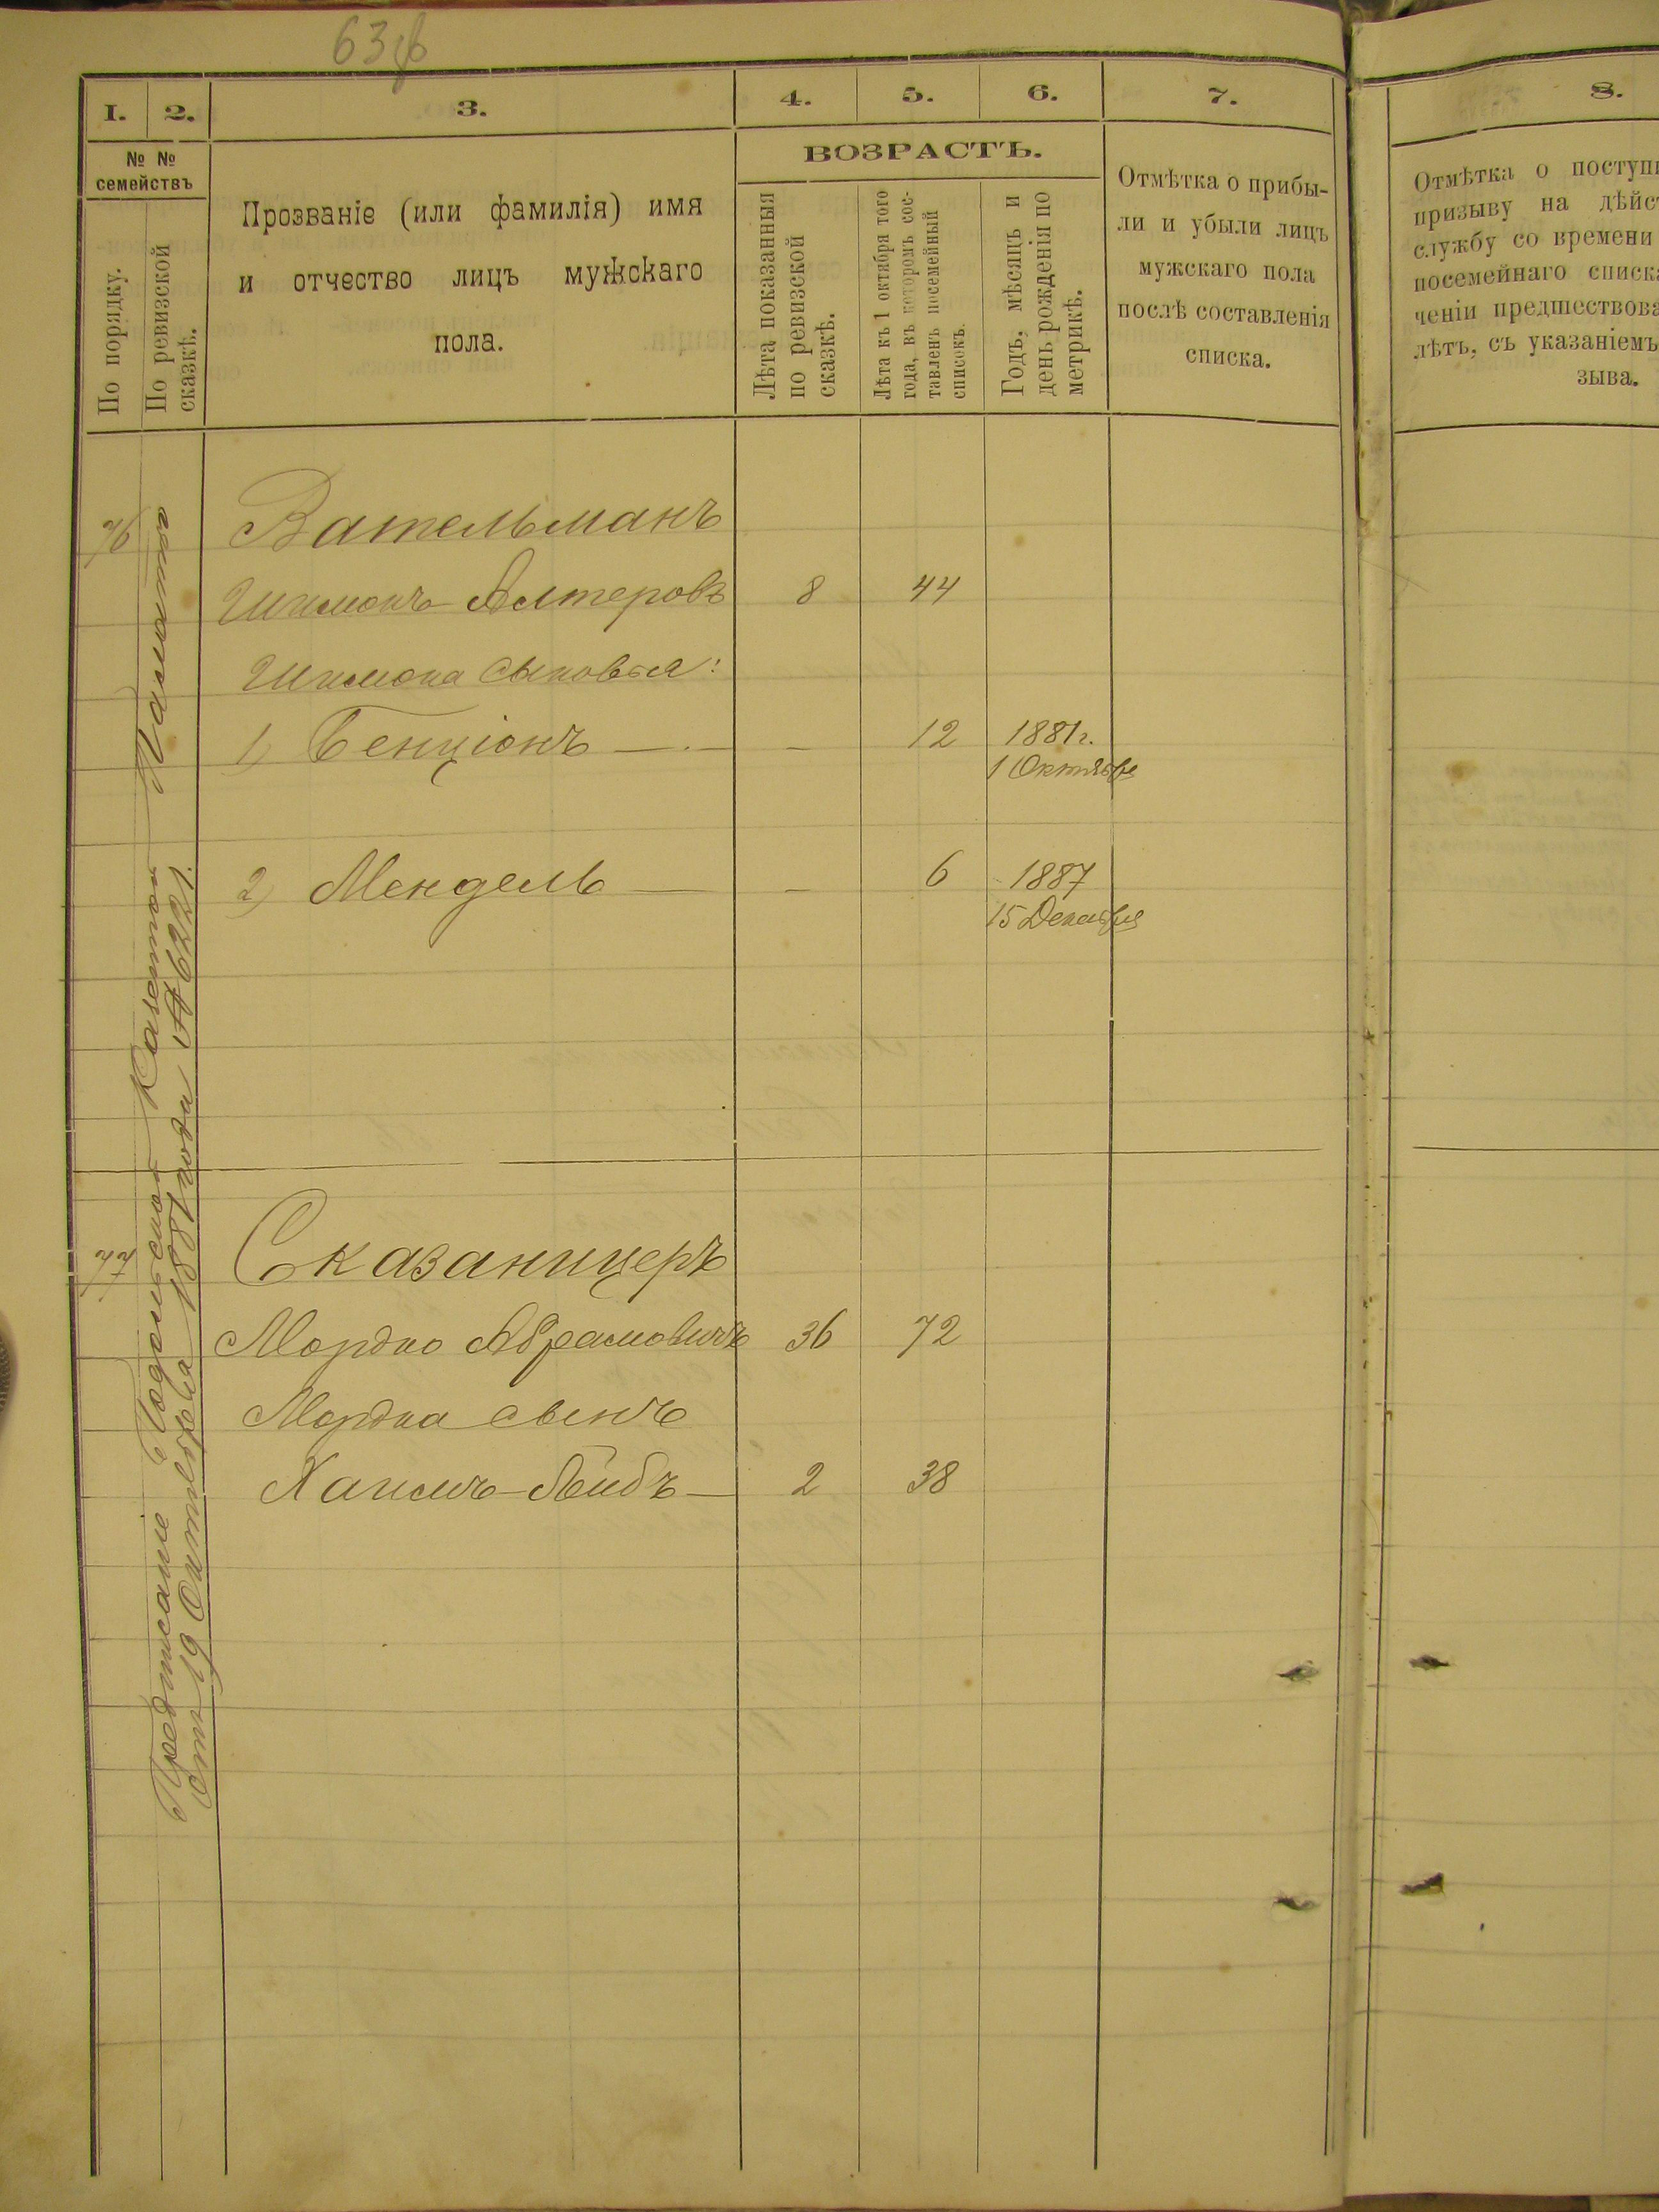 63
1.
2.
3.
4.
5.
6.
7.
8.
№ №
семействъ
По порядку.
По ревизской
сказкѣ.
Прозваніе (или фамилія) имя
и отчество лицъ мужскаго
пола.
ВОЗРАСТЪ.
Лѣта показанныя
по ревизской
сказкѣ.
Лѣта къ 1 октября того
года, въ которомъ сос-
тавленъ посемейный
списокъ.
Годъ, мѣсяцъ и
день рожденія по
метрикѣ.
Отмѣтка о прибы-
ли и убыли лицъ
мужскаго пола
послѣ составленія
списка.
Отмѣтка о поступ
призыву на дѣйс
службу со времени
посемейнаго списк
ченіи предшествова
лѣтъ, съ указаніемъ
зыва.
76
Вательманъ
Шимонъ Алтеровъ 8 44
Шимона сыновья:
1) Бенціонъ — - 12 1881 г.
1 Октября
2) Мендель — - 6 1887
15 Декабря
77
Сказаницеръ
Мордко Абрамовичъ 36 72
Мордка сынъ
Хаимъ-Лейбъ — 2 38
Предписаніе Подольской Казенной Палаты
отъ 19 Октября 1887 года №6221.